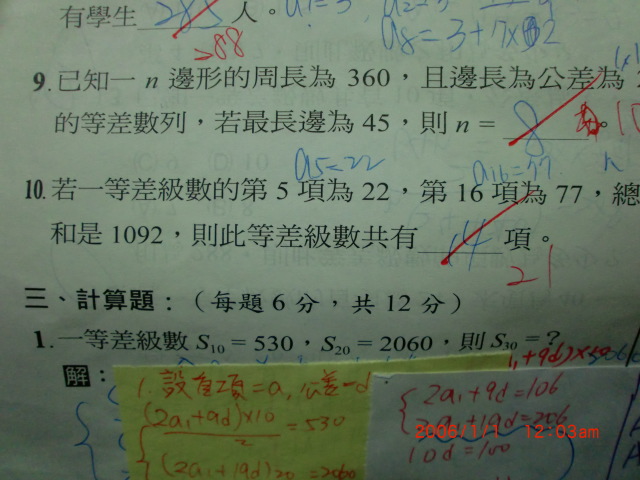 有學生 285 人。 a₁=3
288 a₈=3+7×
9. 已知一 n 邊形的周長為 360，且邊長為公差為
的等差數列，若最長邊為 45，則 n = 8 。
a₅=22 a₁₆=77
10. 若一等差級數的第 5 項為 22，第 16 項為 77，總
和是 1092，則此等差級數共有 14 項。
21
三、計算題：（每題 6 分，共 12 分）
1. 一等差級數 S₁₀ = 530，S₂₀ = 2060，則 S₃₀ = ?
解：
1. 設首項=a, 公差=d
(2a₁+9d)×10/2 = 530
(2a₁+19d)20 = 2060
2a₁+9d=106
2a₁+19d=206
10d=100
2006/1/1 12:03am